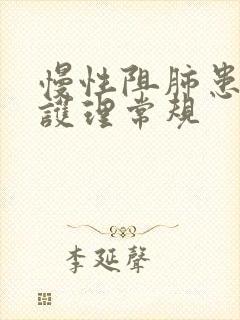 慢性阻肺患
護理常規
李延聲